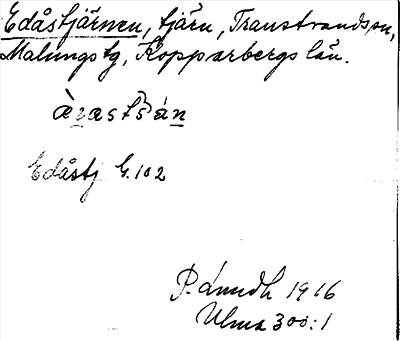 Edåstjärnen, tjärn, Transtrands sn,
Malungs tg, Kopparbergs län.
Edåstj G. 102
1916
Ulma 300:1